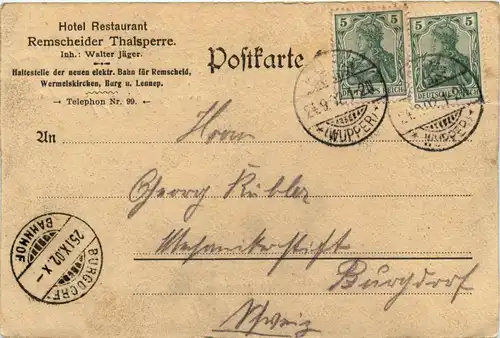 Hotel Restaurant
Remscheider Thalsperre.
Inh.: Walter Jäger.
Haltestelle der neuen elektr. Bahn für Remscheid,
Wermelskirchen, Burg u. Lennep.
Telephon Nr. 99.
Postkarte
5 5
5 5
DEUTSCHES REICH
(WUPPER)
(WUPPER)
An
Herrn
Georg Kübler
Burgdorf
Schweiz
BURGDORF
25.IX.02.X-
BAHNHOF